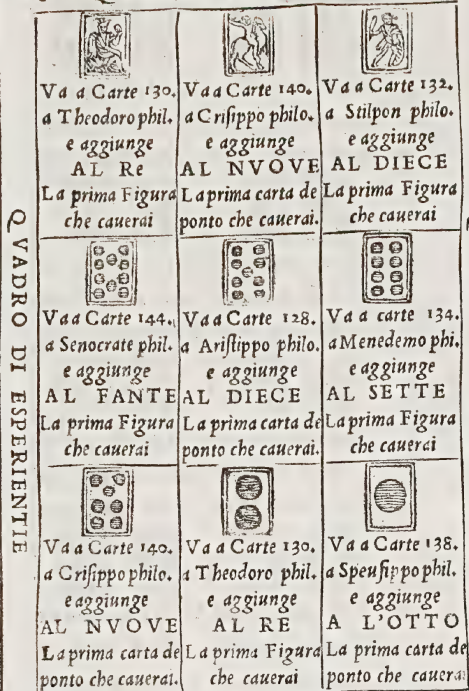 QVADRO DI ESPERIENTIE
Va a Carte 130.
a Theodoro phil.
e aggiunge
AL Re
La prima Figura
che cauerai
Va a Carte 140.
a Crisippo philo.
e aggiunge
AL NVOVE
La prima carta de
ponto che cauerai.
Va a Carte 132.
a Stilpon philo.
e aggiunge
AL DIECE
La prima Figura
che cauerai
Va a Carte 144.
a Senocrate phil.
e aggiunge
AL FANTE
La prima Figura
che cauerai
Va a Carte 128.
a Aristippo philo.
e aggiunge
AL DIECE
La prima carta de
ponto che cauerai.
Va a carte 134.
a Menedemo phi.
e aggiunge
AL SETTE
La prima Figura
che cauerai
Va a Carte 140.
a Crisippo philo.
e aggiunge
AL NVOVE
La prima carta de
ponto che cauerai.
Va a Carte 130.
a Theodoro phil.
e aggiunge
AL RE
La prima Figura
che cauerai
Va a Carte 138.
a Speusippo phil.
e aggiunge
A L'OTTO
La prima carta de
ponto che cauerai